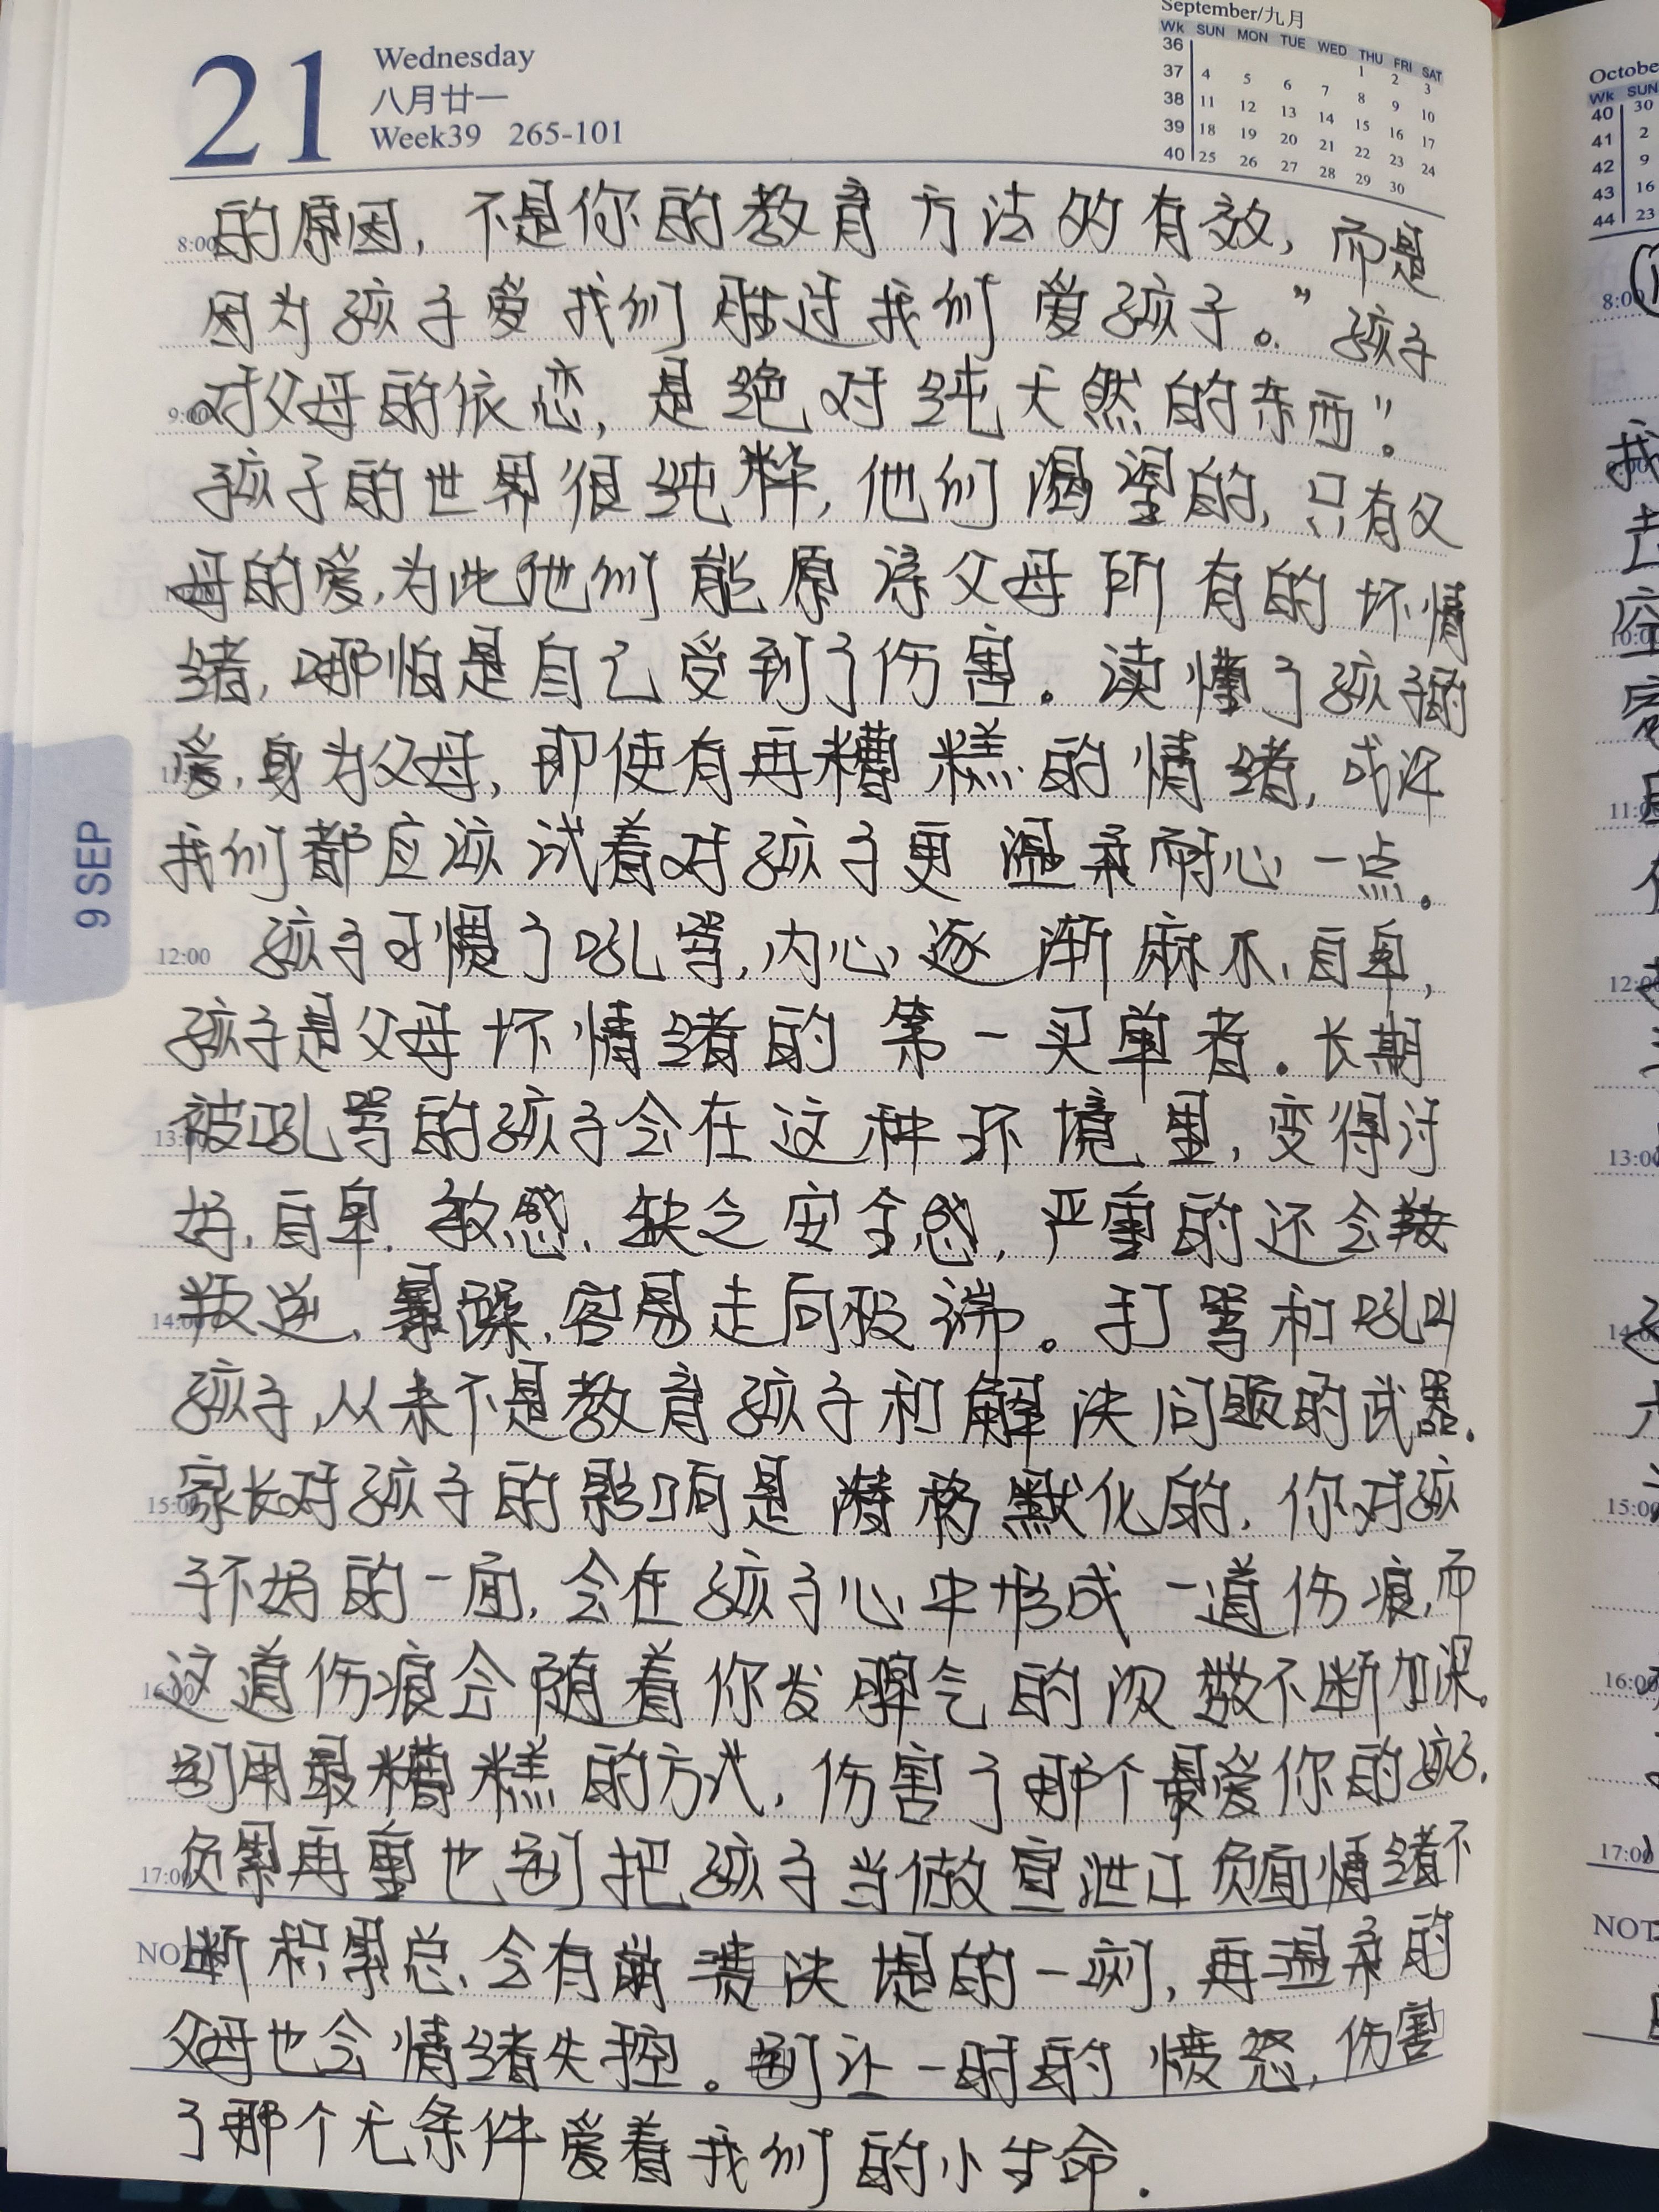 21
Wednesday
八月廿一
Week39 265-101
September/九月
Wk SUN MON TUE WED THU FRI SAT
36 1 2 3
37 4 5 6 7 8 9 10
38 11 12 13 14 15 16 17
39 18 19 20 21 22 23 24
40 25 26 27 28 29 30
8:00 的原因，不是你的教育方法的有效，而是
因为孩子爱我们胜过我们爱孩子。”孩子
9:00 对父母的依恋，是绝对纯天然的东西”。
孩子的世界很纯粹，他们渴望的，只有父
母的爱，为此他们能原谅父母所有的坏情
绪，哪怕是自己受到了伤害。读懂了孩子的
爱，身为父母，即使有再糟糕的情绪，或许
我们都应该试着对孩子更温柔耐心一点。
12:00 孩子习惯了吼骂，内心逐渐麻木，自卑，
孩子是父母坏情绪的第一买单者。长期
13:00 被吼骂的孩子会在这种环境里，变得讨
好，自卑，敏感，缺乏安全感，严重的还会
14:00 叛逆，暴躁，容易走向极端。打骂和吼叫
孩子，从来不是教育孩子和解决问题的武器．
15:00 家长对孩子的影响是潜移默化的，你对孩
子不好的一面，会在孩子心中形成一道伤痕，而
16:00 这道伤痕会随着你发脾气的次数不断加深。
别用最糟糕的方式，伤害了那个最爱你的孩子．
17:00 负累再重也别把孩子当做宣泄口负面情绪不
断积累总，会有崩溃决堤的一刻，再温柔的
父母也会情绪失控。别让一时的愤怒，伤害
了那个无条件爱着我们的小生命．
9 SEP
Wk SUN
40 30
41 2
42 9
43 16
44 23
8:00
11:00
13:00
15:00
16:00
17:00